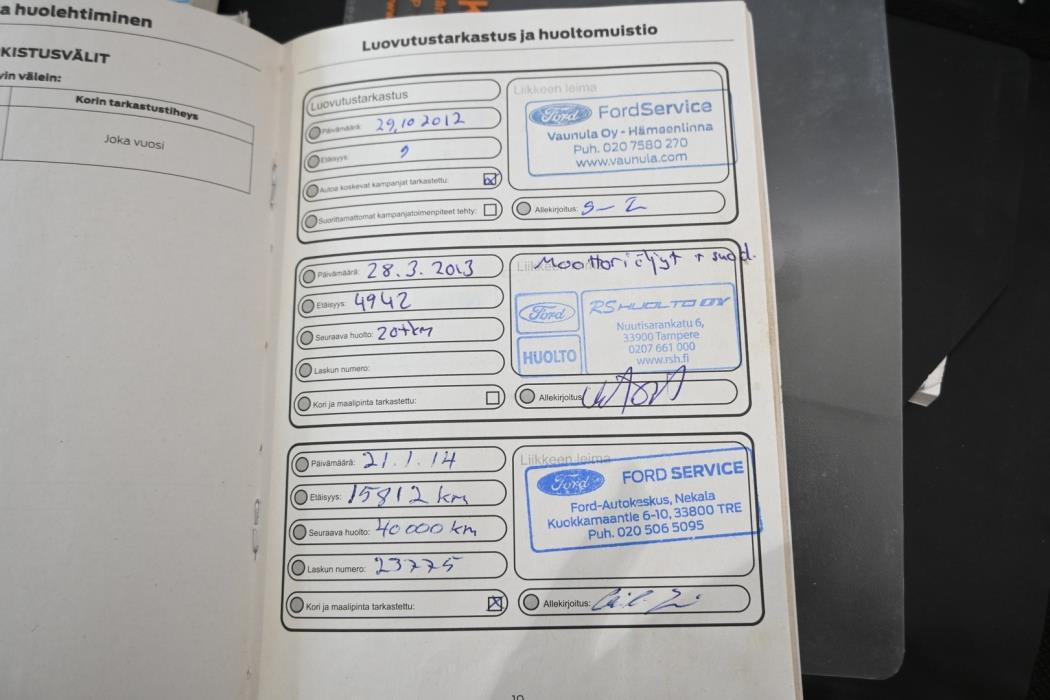 a huolehtiminen
KISTUSVÄLIT
vin välein:
Korin tarkastustiheys
Joka vuosi
Luovutustarkastus ja huoltomuistio
Luovutustarkastus
Päivämäärä: 29.10 2012
Etäisyys: 9
Autoa koskevat kampanjat tarkastettu:
Suorittamattomat kampanjatoimenpiteet tehty:
Liikkeen leima
Ford FordService
Vaunula Oy - Hämeenlinna
Puh. 020 7580 270
www.vaunula.com
Allekirjoitus:
Päivämäärä: 28.3. 2013
Etäisyys: 4942
Seuraava huolto: 20tkm
Laskun numero:
Kori ja maalipinta tarkastettu:
Moottoriöljyt + suod.
Ford
HUOLTO
RS HUOLTO OY
Nuutisarankatu 6,
33900 Tampere
0207 661 000
www.rsh.fi
Allekirjoitus
Päivämäärä: 21.1.14
Etäisyys: 15812 km
Seuraava huolto: 40000 km
Laskun numero: 23775
Kori ja maalipinta tarkastettu:
Liikkeen leima
Ford FORD SERVICE
Ford-Autokeskus, Nekala
Kuokkamaantie 6-10, 33800 TRE
Puh. 020 506 5095
Allekirjoitus: